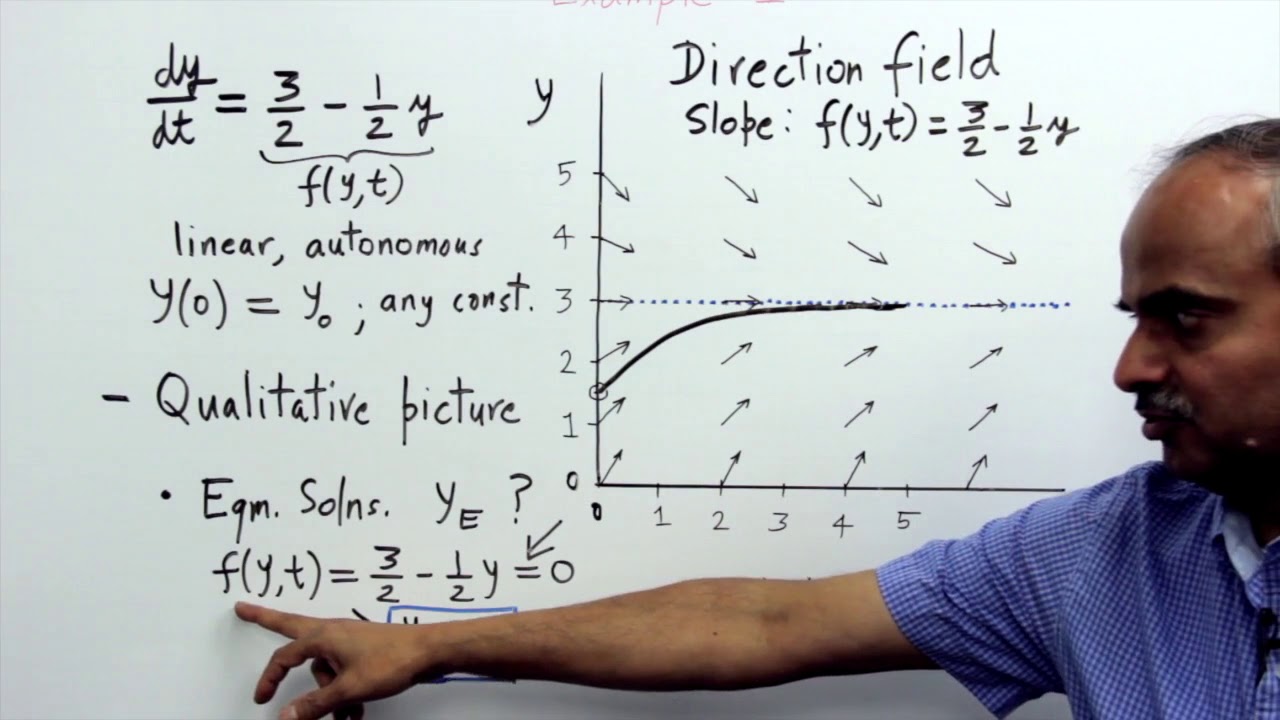 Example 1
dy/dt = 3/2 - 1/2 y
f(y,t)
linear, autonomous
y(0) = y₀ ; any const.
- Qualitative picture
• Eqm. Solns. y_E ?
f(y,t) = 3/2 - 1/2 y = 0
Direction field
Slope: f(y,t) = 3/2 - 1/2 y
y
5
4
3
2
1
0
0 1 2 3 4 5